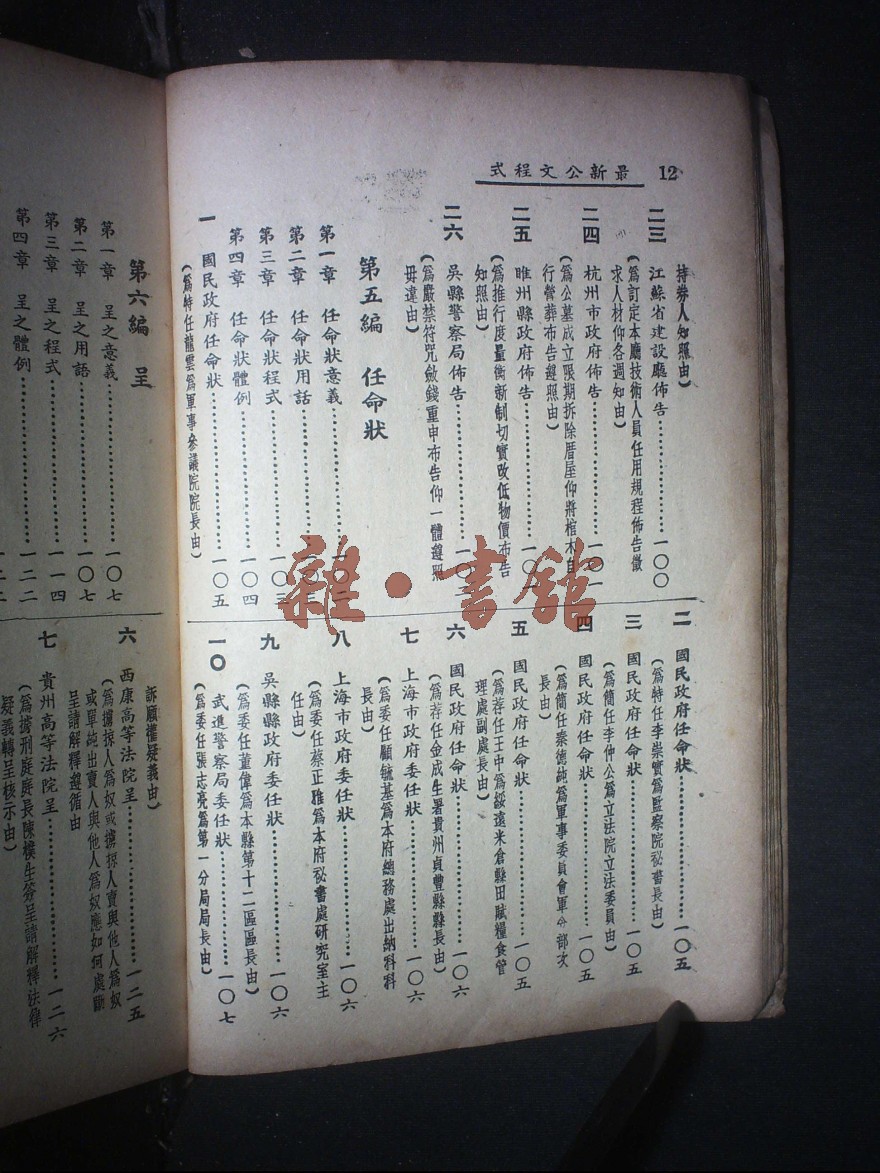 12 最新公文程式
持券人知照由）
二三 江蘇省建設廳佈告…………一〇〇
（爲訂定本廳技術人員任用規程佈告徵
求人材仰各週知由）
二四 杭州市政府佈告…………一〇一
（爲公墓成立限期拆除厝屋仰將棺木自
行營葬布告遵照由）
二五 睢州縣政府佈告
（爲推行度量衡新制切實改低物價布告
知照由）
二六 吳縣警察局佈告…………一〇
（爲嚴禁符咒斂錢重申布告仰一體遵照
毋違由）
第五編 任命狀
第一章 任命狀意義…………一〇
第二章 任命狀用話…………一〇
第三章 任命狀程式…………一〇三
第四章 任命狀體例…………一〇四
一 國民政府任命狀…………一〇五
（爲特任龍雲爲軍事參議院院長由）
二 國民政府任命狀…………一〇五
（爲特任李崇實爲監察院祕書長由）
三 國民政府任命狀…………一〇五
（爲簡任李仲公爲立法院立法委員由）
四 國民政府任命狀…………一〇五
（爲簡任秦德純爲軍事委員會軍令部次
長由）
五 國民政府任命狀…………一〇五
（爲荐任王中爲綏遠米倉縣田賦糧食管
理處副處長由）
六 國民政府任命狀…………一〇六
（爲荐任金成生署貴州貞豐縣縣長由）
七 上海市政府委任狀…………一〇六
（爲委任顧毓基爲本府總務處出納科科
長由）
八 上海市政府委任狀…………一〇六
（爲委任蔡正雅爲本府祕書處研究室主
任由）
九 吳縣縣政府委任狀…………一〇六
（爲委任董偉爲本縣第十二區區長由）
一〇 武進警察局委任狀…………一〇七
（爲委任張志亮爲第一分局局長由）
第六編 呈
第一章 呈之意義…………一〇七
第二章 呈之用語…………一〇七
第三章 呈之程式…………一一四
第四章 呈之體例…………一二二
訴願權疑義由）
六 西康高等法院呈…………一二五
（爲擄掠人爲奴或擄掠人賣與他人爲奴
或單純出賣人與他人爲奴應如何處斷
呈請解釋遵循由
七 貴州高等法院呈…………一二六
（爲據刑庭庭長陳樸生簽呈請解釋法律
疑義轉呈核示由）
雜·書館